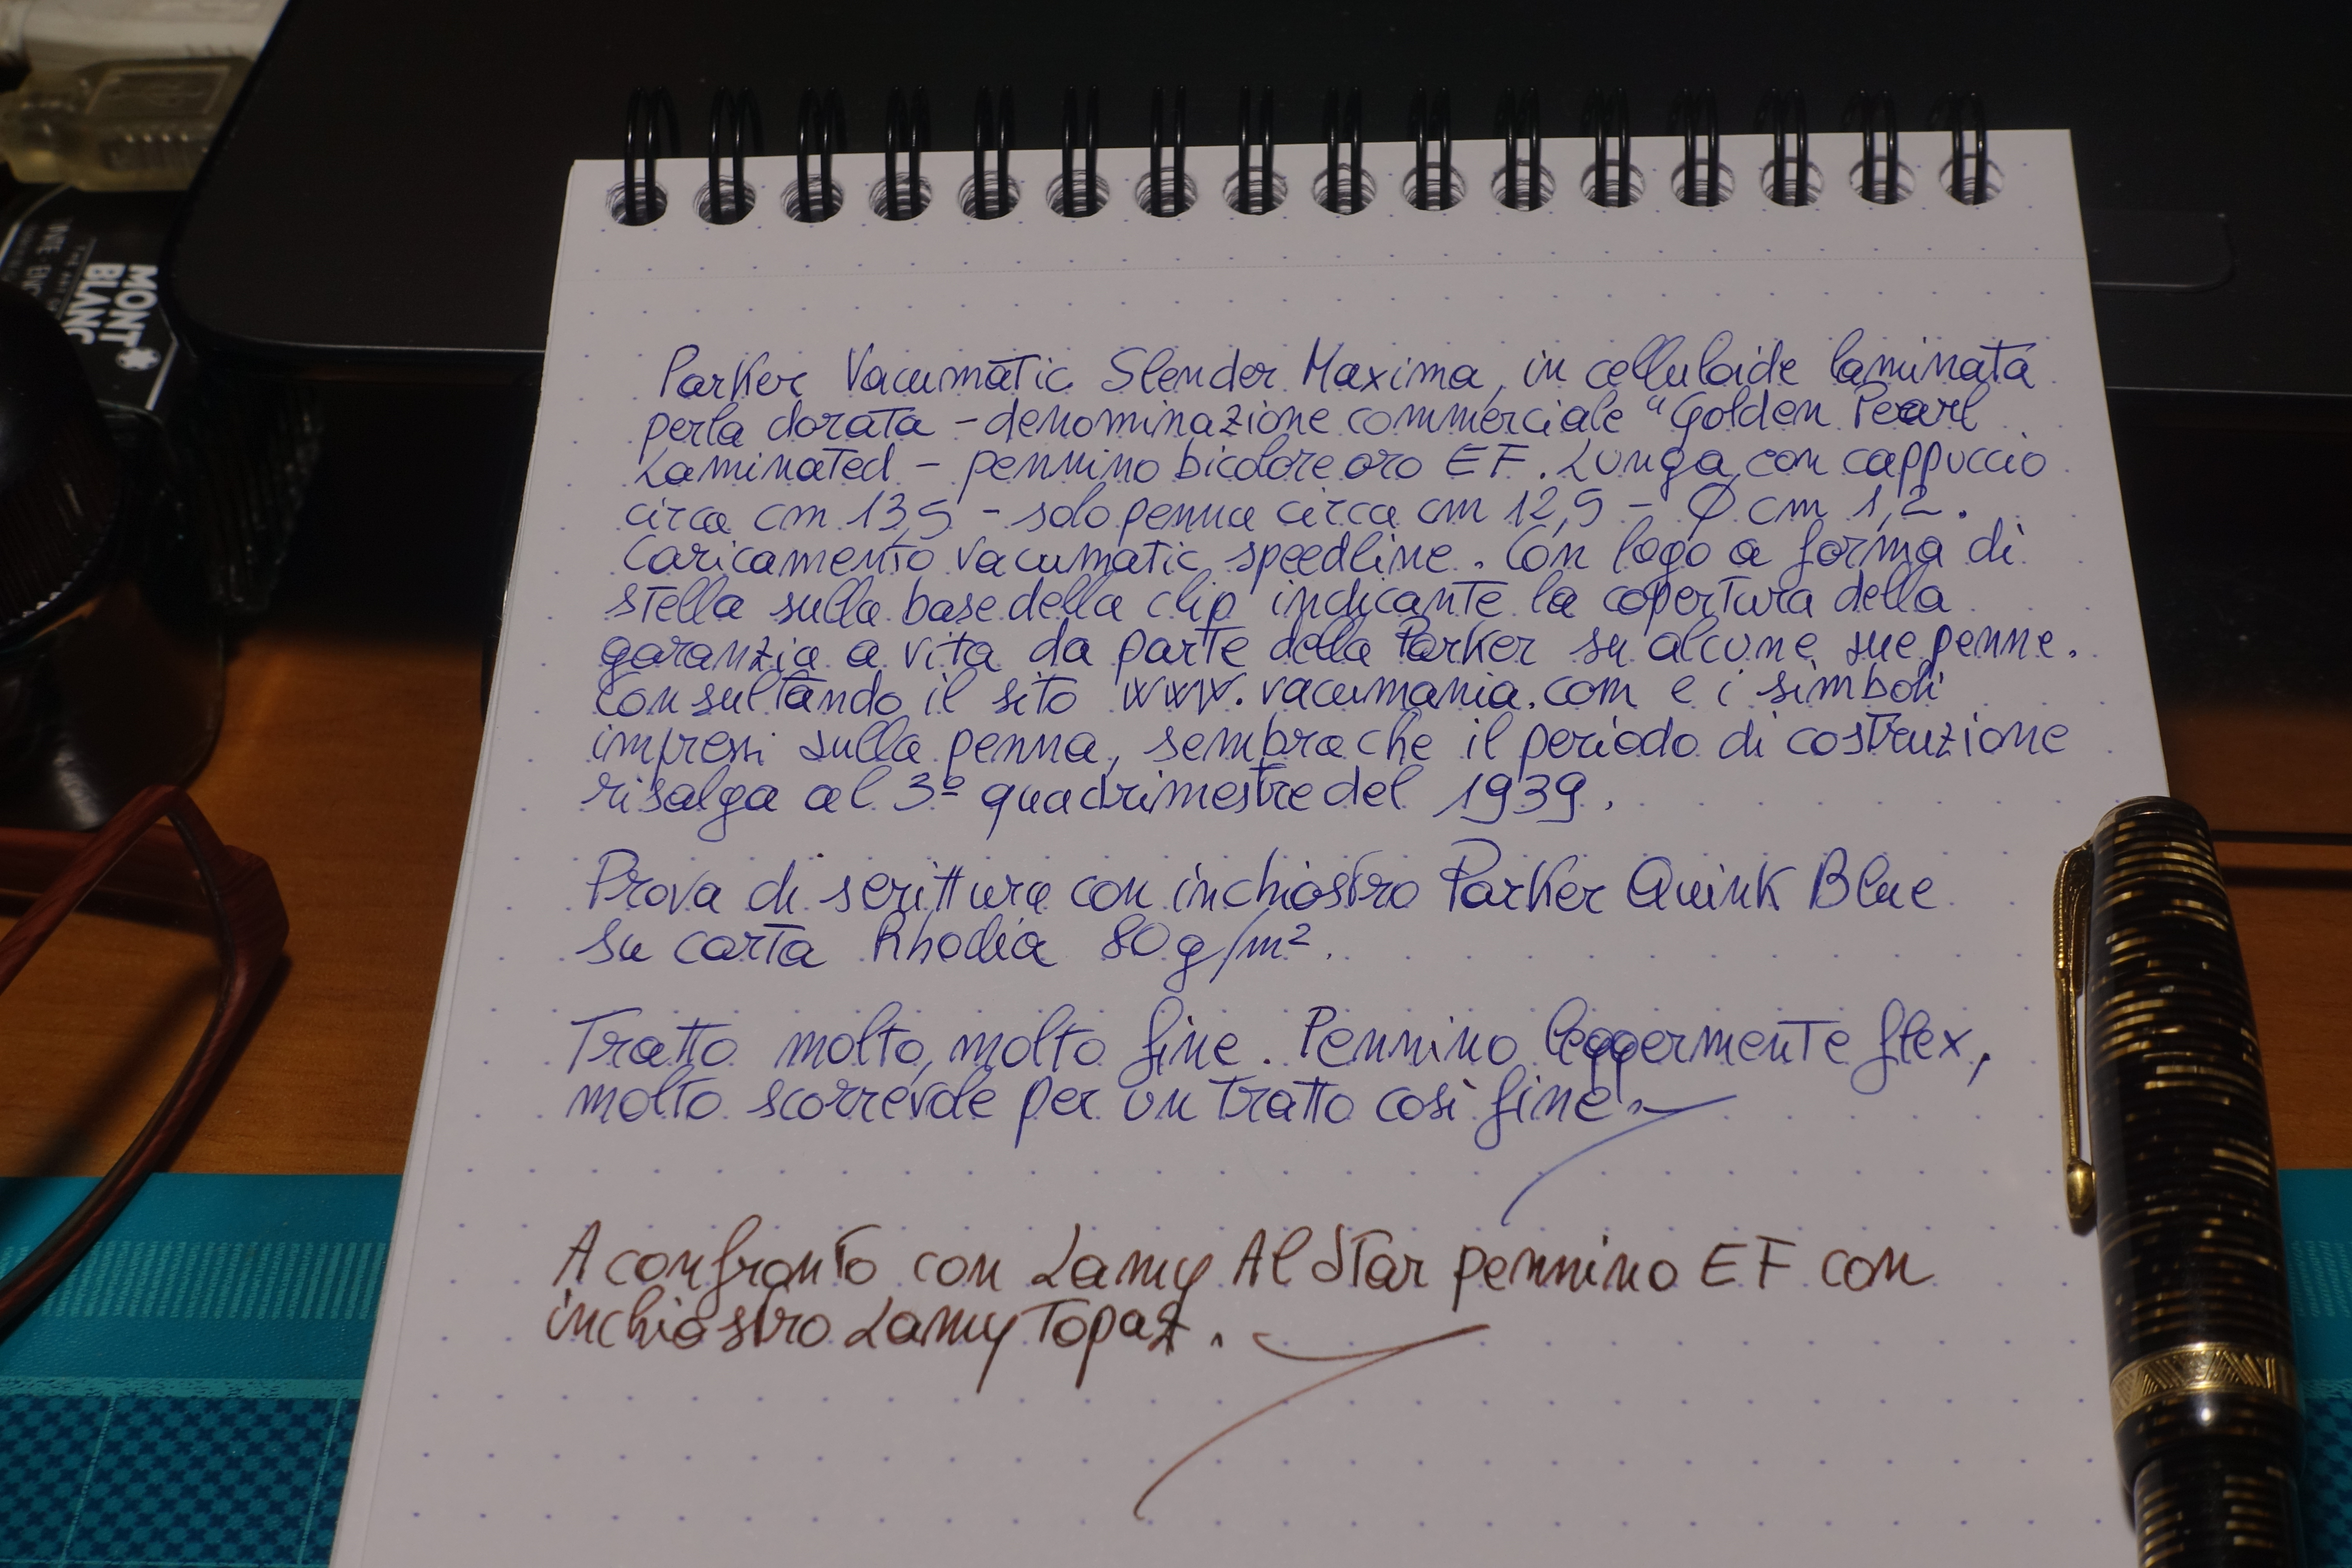 MONT
BLANC
Parker Vacumatic Slender Maxima, in celluloide laminata
perla dorata - denominazione commerciale "Golden Pearl
Laminated - pennino bicolore oro EF. Lunga con cappuccio
circa cm 13,5 - solo penna circa cm 12,5 - Ø cm 1,2.
Caricamento vacumatic speedline. Con logo a forma di
stella sulla base della clip indicante la copertura della
garanzia a vita da parte della Parker su alcune sue penne.
Consultando il sito www.vacumania.com e i simboli
impressi sulla penna, sembra che il periodo di costruzione
risalga al 3º quadrimestre del 1939.
Prova di scrittura con inchiostro Parker Quink Blue
su carta Rhodia 80 g/m².
Tratto molto, molto fine. Pennino leggermente flex,
molto scorrevole per un tratto così fine.
A confronto con Lamy Al Star pennino EF con
inchiostro Lamy Topaz.